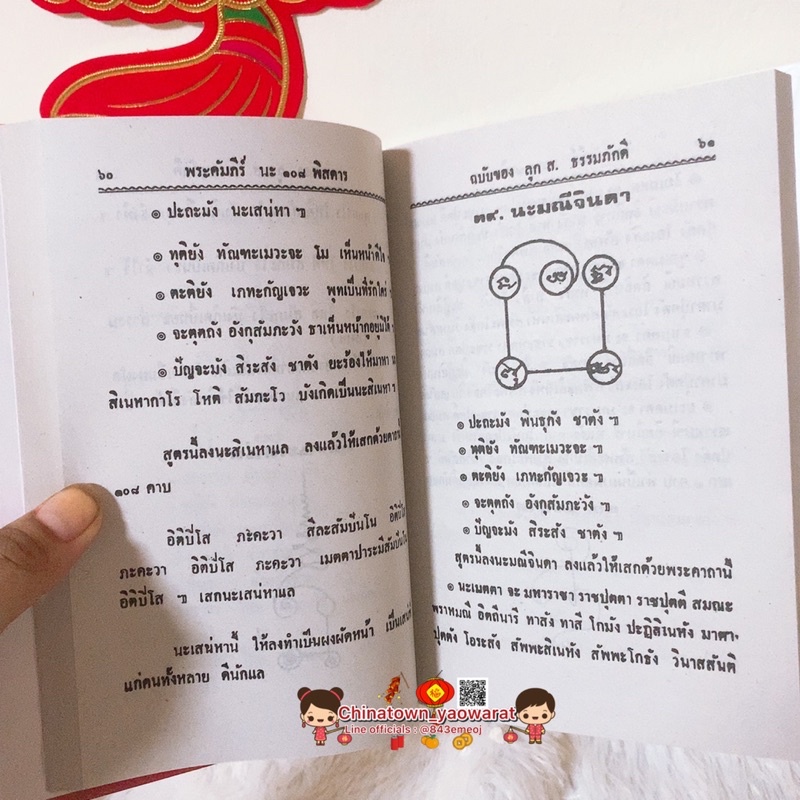 ๖๐ พระคัมภีร์ นะ ๑๐๘ พิสดาร
๏ ปะถะมัง นะเสน่หา ฯ
๏ ทุติยัง ทัณฑะเมวะจะ โม เห็นหน้าดีใจ
๏ ตะติยัง เภทะกัญเจวะ พุทเป็นที่รักใคร่ ฯ
๏ จะตุตถัง อังกุสมภะวัง ธาเห็นหน้ากูอยู่มิได้
๏ ปัญจะมัง สิระสัง ชาตัง ยะร้องไห้มาหา
สิเนหากาโร โหติ สัมภะโว บังเกิดเป็นนะสิเนหา ฯ
สูตรนี้ลงนะสิเนหาแล ลงแล้วให้เสกด้วยคาถานี้
๑๐๘ คาบ
อิติปิโส ภะคะวา สีละสัมปันโน อิติปิโส
ภะคะวา อิติปิโส ภะคะวา เมตตาปาระมีสัมปันโน
อิติปิโส ฯ เสกนะเสน่หาแล
นะเสน่หานี้ ให้ลงทำเป็นผงผัดหน้า เป็นเสน่ห์
แก่คนทั้งหลาย ดีนักแล
ฉบับของ ลุก ส. ธรรมภักดี ๖๑
๓๙. นะมณีจินดา
๏ ปะถะมัง พินธุกัง ชาตัง ฯ
๏ ทุติยัง ทัณฑะเมวะจะ ฯ
๏ ตะติยัง เภทะกัญเจวะ ฯ
๏ จะตุตถัง อังกุสัมภะวัง ฯ
๏ ปัญจะมัง สิระสัง ชาตัง ฯ
สูตรนี้ลงนะมณีจินดา ลงแล้วให้เสกด้วยพระคาถานี้
๏ นะเมตตา จะ มหาราชา ราชปุตตา ราชปุตตี สมณะ
พราหมณี อิตถีนารี ทาสัง ทาสี โกมัง ปะฏิสิเนหัง มาตา-
ปุตตัง โอระสัง สัพพะสิเนหัง สัพพะโกธัง วินาสสันติ
Chinatown_yaowarat
Line officials : @843emeoj